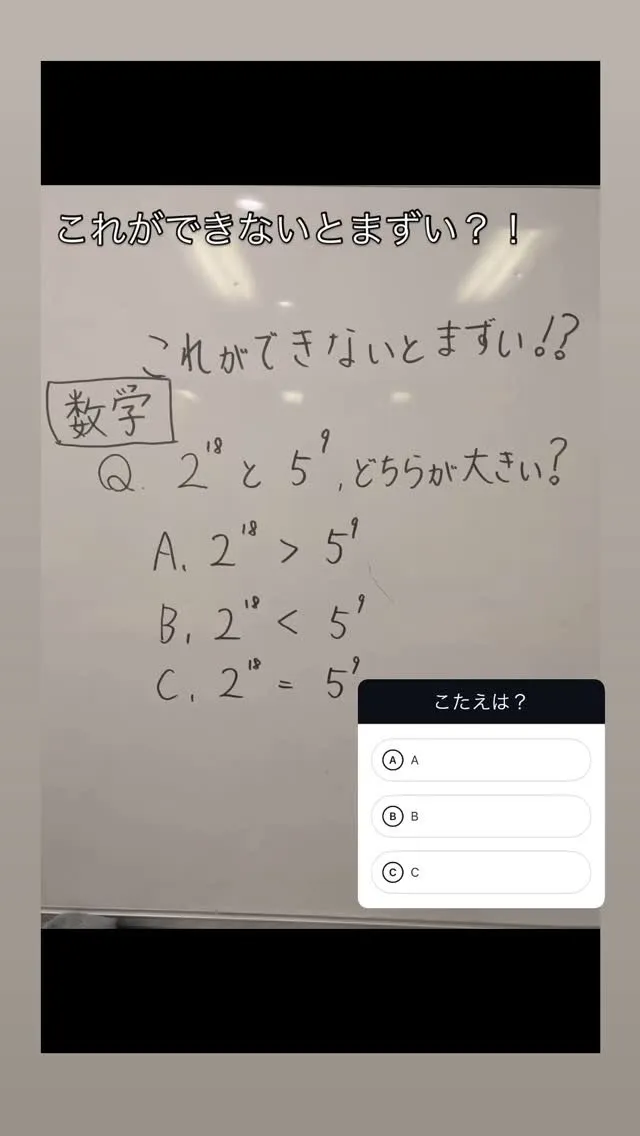 これができないとまずい？！
これができないとまずい!?
数学
Q. 2^18 と 5^9, どちらが大きい?
A. 2^18 > 5^9
B. 2^18 < 5^9
C. 2^18 = 5^9
こたえは？
A A
B B
C C